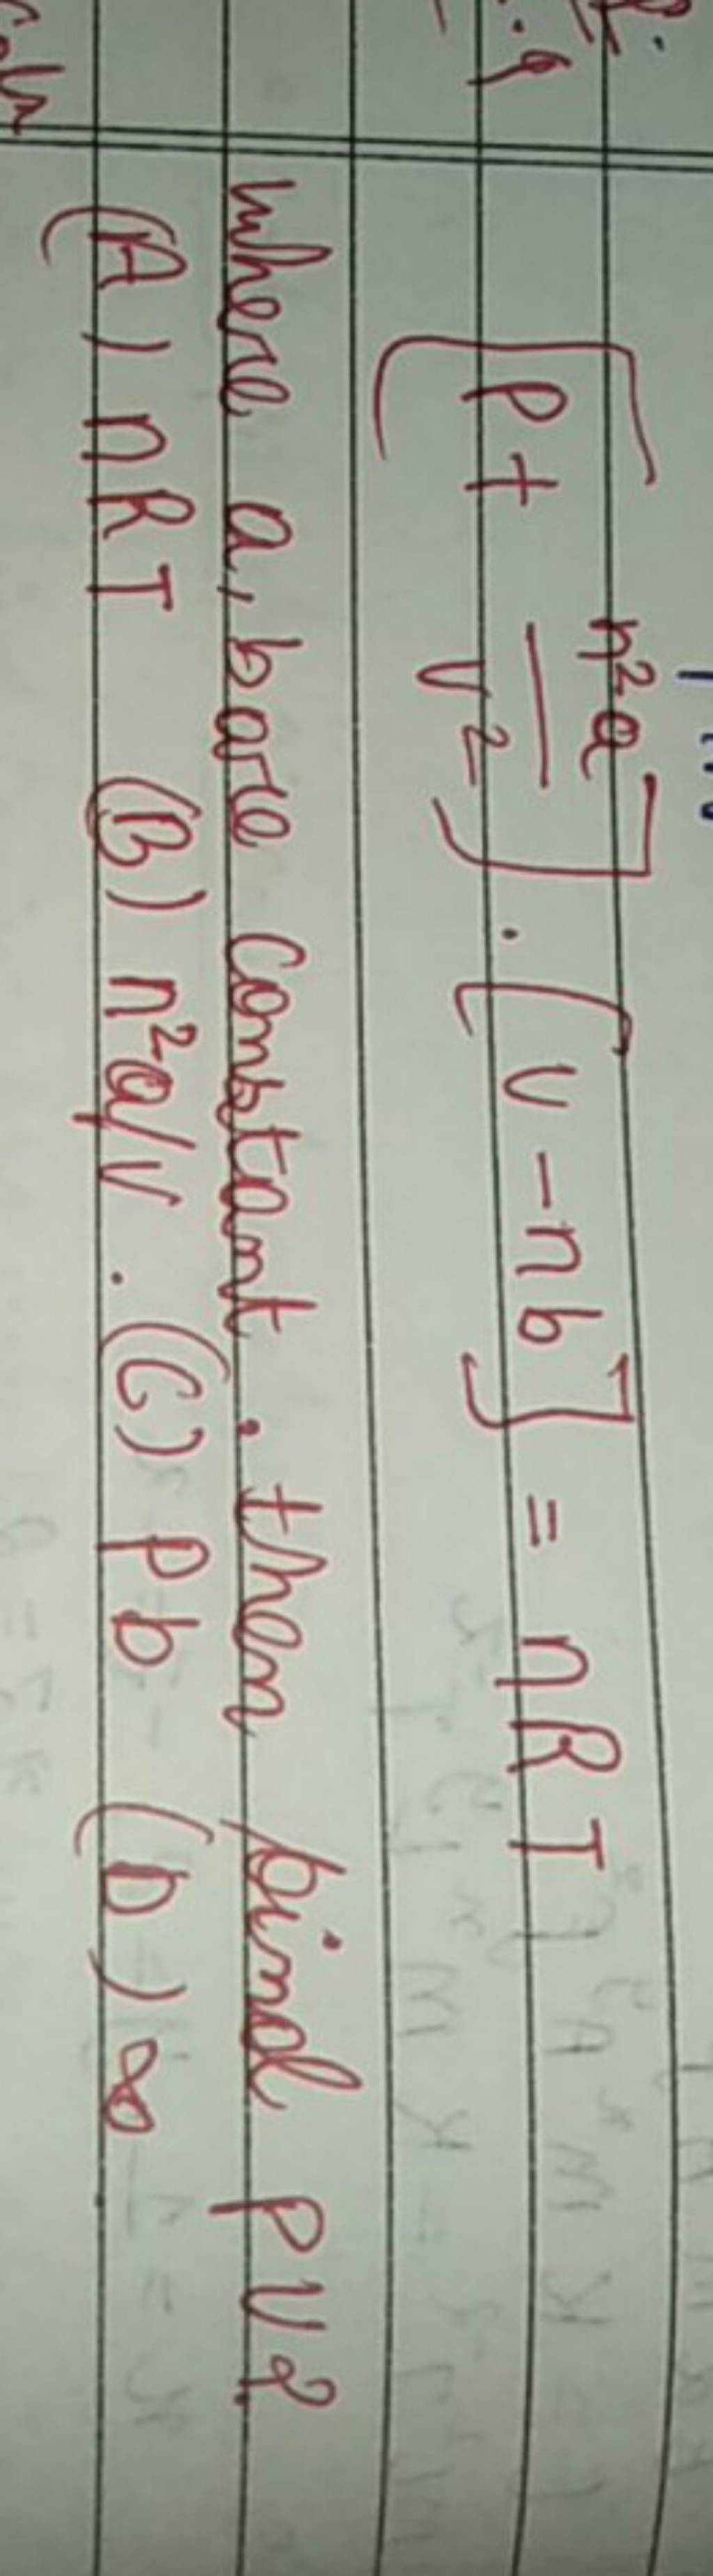 [P + n²a / V²] . [V - nb] = nRT
where a, b are constant. then find PV?
(A) nRT (B) n²a/V . (C) Pb (D) ∞